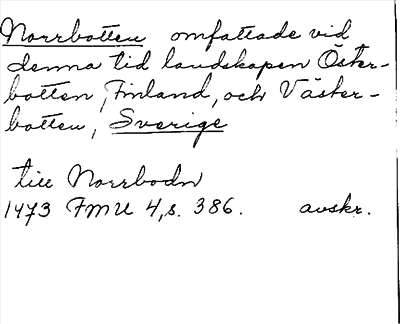 Norrbotten omfattade vid
denna tid landskapen Öster-
botten, Finland, och Väster-
botten, Sverige
till Norrbodn
1473 FMU 4, s. 386. avskr.